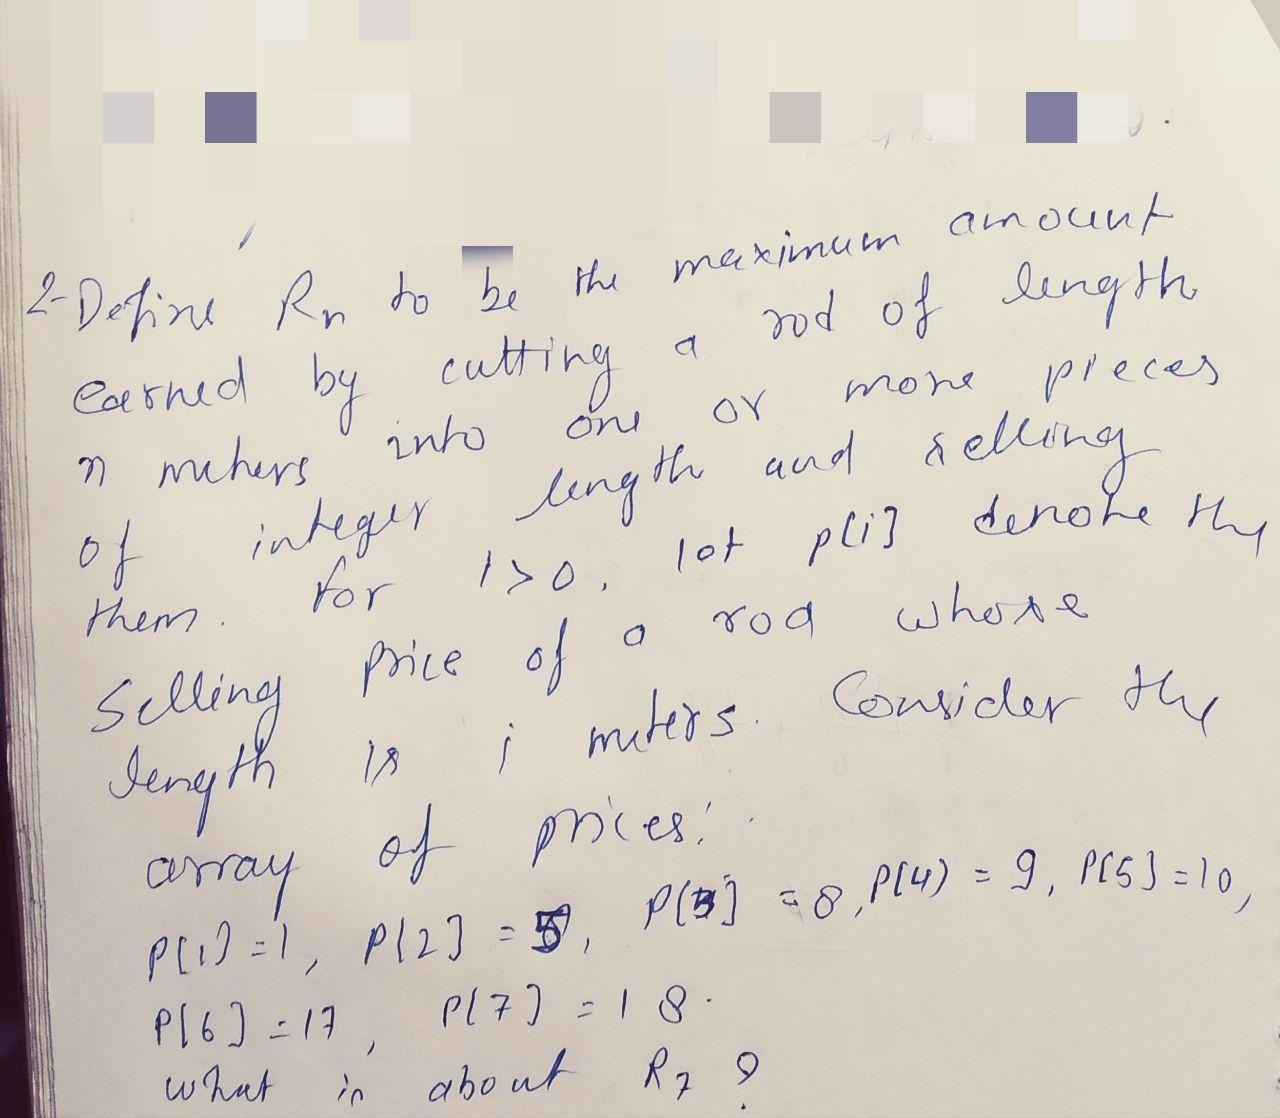 2- Define Rn to be the maximum amount
earned by cutting a rod of length
n meters into one or more pieces
of integer length and selling
them. for i>0, let p[i] denote the
selling price of a rod whose
length is i meters. Consider the
array of prices:
P[1]=1, P[2]=5, P[3]=8, P(4)=9, P[5]=10,
P[6]=17, P[7]=18.
what is about R7?